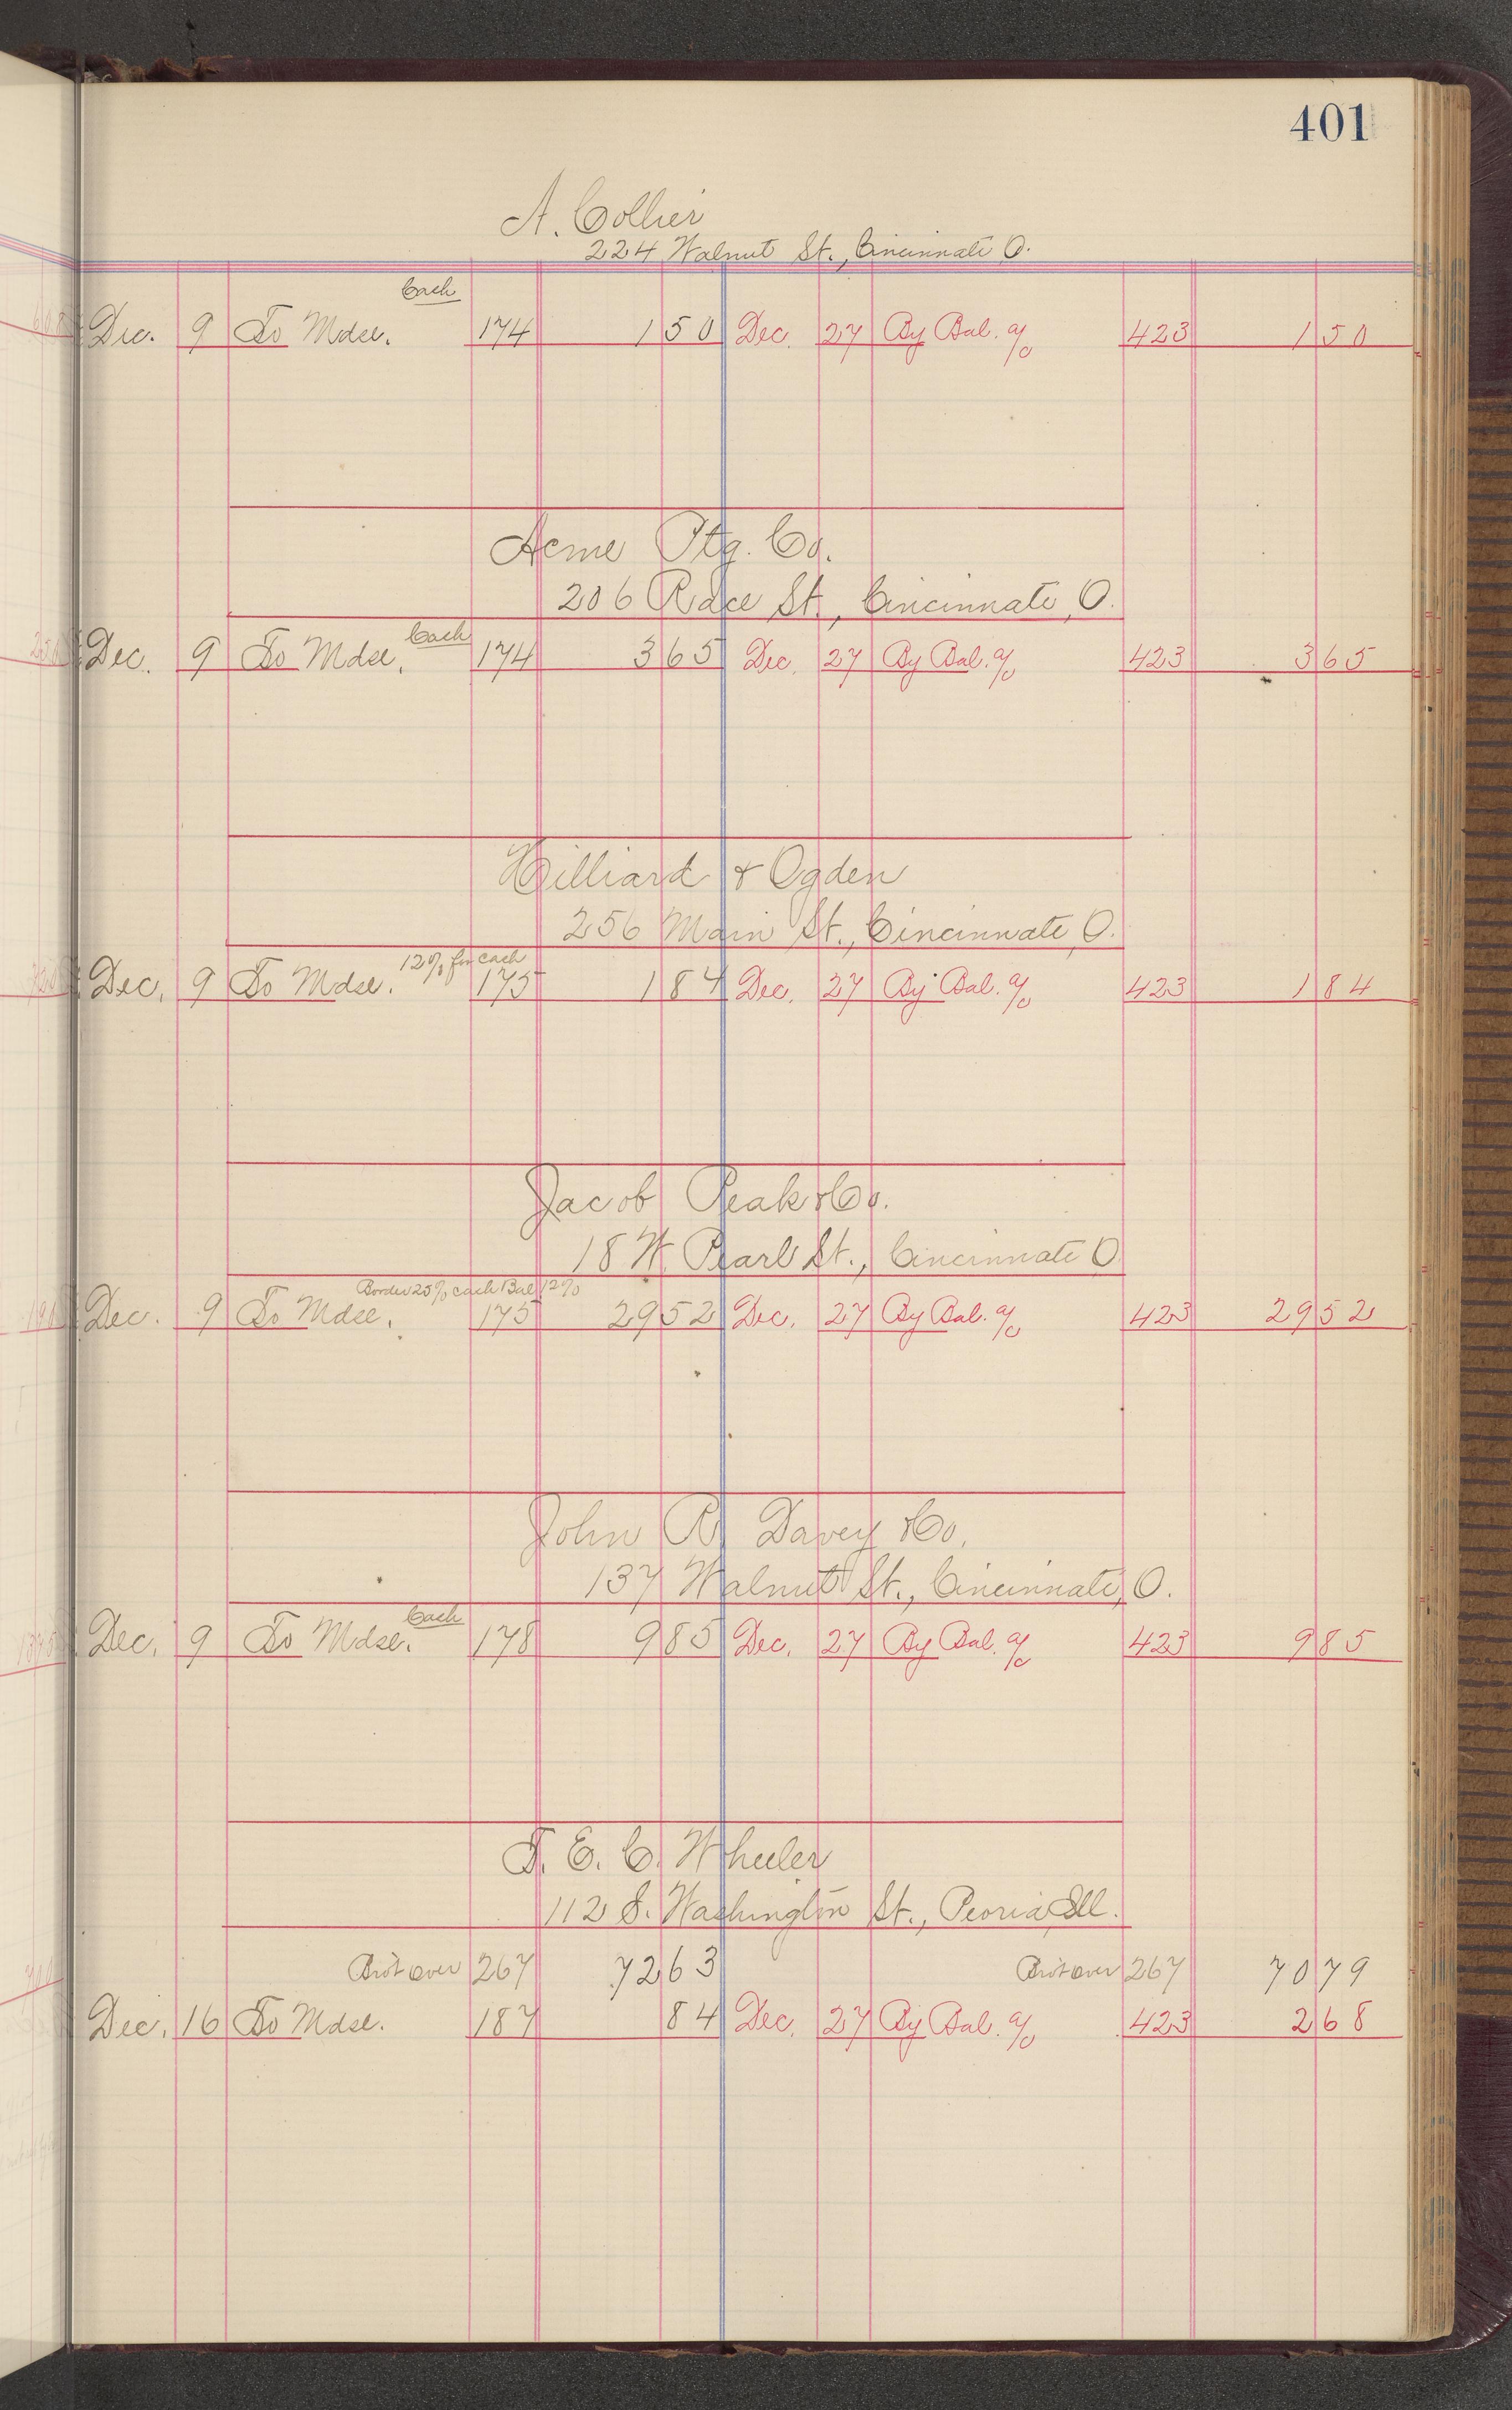 401
A. Collier
224 Walnut St., Cincinnati O.
Cash
Dec. 9 To Mdse. 174 1 50 Dec. 27 By Bal. a/c 423 1 50
Acme Ptg. Co.
206 Race St., Cincinnati, O.
Cash
Dec. 9 To Mdse. 174 3 65 Dec. 27 By Bal. a/c 423 3 65
Hilliard & Ogden
256 Main St., Cincinnati, O.
12% for cash
Dec. 9 To Mdse. 175 1 84 Dec. 27 By Bal. a/c 423 1 84
Jacob Peak & Co.
18 W. Pearl St., Cincinnati O
Border 25% cash Bal 12%
Dec. 9 To Mdse. 175 29 52 Dec. 27 By Bal. a/c 423 29 52
John R. Davey & Co.
137 Walnut St., Cincinnati, O.
Cash
Dec. 9 To Mdse. 178 9 85 Dec. 27 By Bal. a/c 423 9 85
T. E. C. Wheeler
112 S. Washington St., Peoria, Ill.
Bro't over 267 72 63 Bro't over 267 70 79
Dec. 16 To Mdse. 187 84 Dec. 27 By Bal. a/c 423 2 68